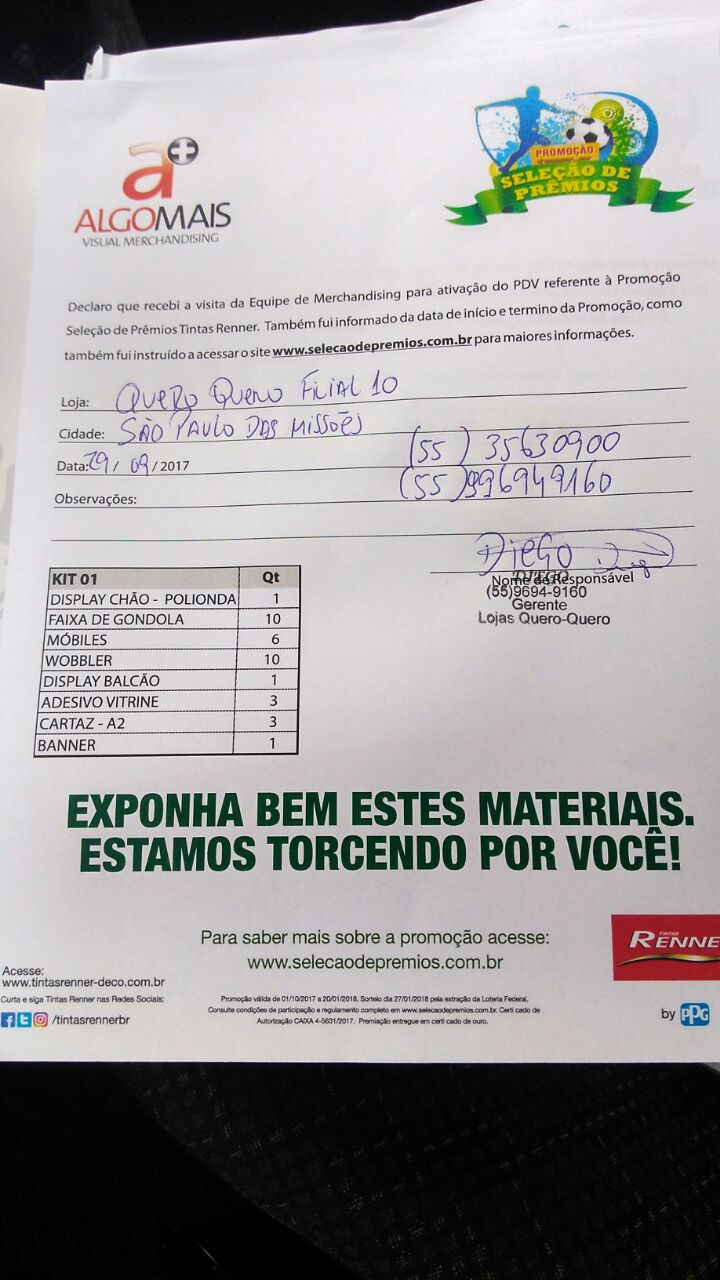 a+
ALGOMAIS
VISUAL MERCHANDISING
PROMOÇÃO
SELEÇÃO DE
PRÊMIOS
Declaro que recebi a visita da Equipe de Merchandising para ativação do PDV referente à Promoção
Seleção de Prêmios Tintas Renner. Também fui informado da data de início e termino da Promoção, como
também fui instruído a acessar o site www.selecaodepremios.com.br para maiores informações.
Loja: QUERO QUERO FILIAL 10
Cidade: SÃO PAULO DAS MISSÕES
Data: 29 / 09 / 2017
(55) 35630900
(55) 996949160
Observações:
DIEGO
DIEGO
Nome do Responsável
(55)9694-9160
Gerente
Lojas Quero-Quero
KIT 01 Qt
DISPLAY CHÃO - POLIONDA 1
FAIXA DE GONDOLA 10
MÓBILES 6
WOBBLER 10
DISPLAY BALCÃO 1
ADESIVO VITRINE 3
CARTAZ - A2 3
BANNER 1
EXPONHA BEM ESTES MATERIAIS.
ESTAMOS TORCENDO POR VOCÊ!
Para saber mais sobre a promoção acesse:
www.selecaodepremios.com.br
TINTAS
RENNE
Acesse:
www.tintasrenner-deco.com.br
Curta e siga Tintas Renner nas Redes Sociais:
/tintasrennerbr
Promoção válida de 01/10/2017 a 20/01/2018. Sorteio dia 27/01/2018 pela extração da Loteria Federal.
Consulte condições de participação e regulamento completo em www.selecaodepremios.com.br. Certi cado de
Autorização CAIXA 4-5631/2017. Premiação entregue em certi cado de ouro.
by PPG